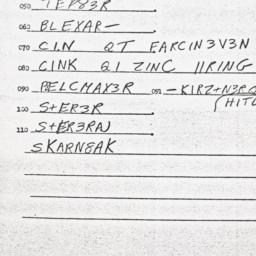 050 TEP83R
060 BLEXAR—
070 CIN QT EARCIN3V3N
080 CINK QI ZINC IIRING
090 BELCMAX3R 091 —KIRZ+N3RC
(HITC
100 S+ER3R
110 S+ER3RN
SKARNGAK